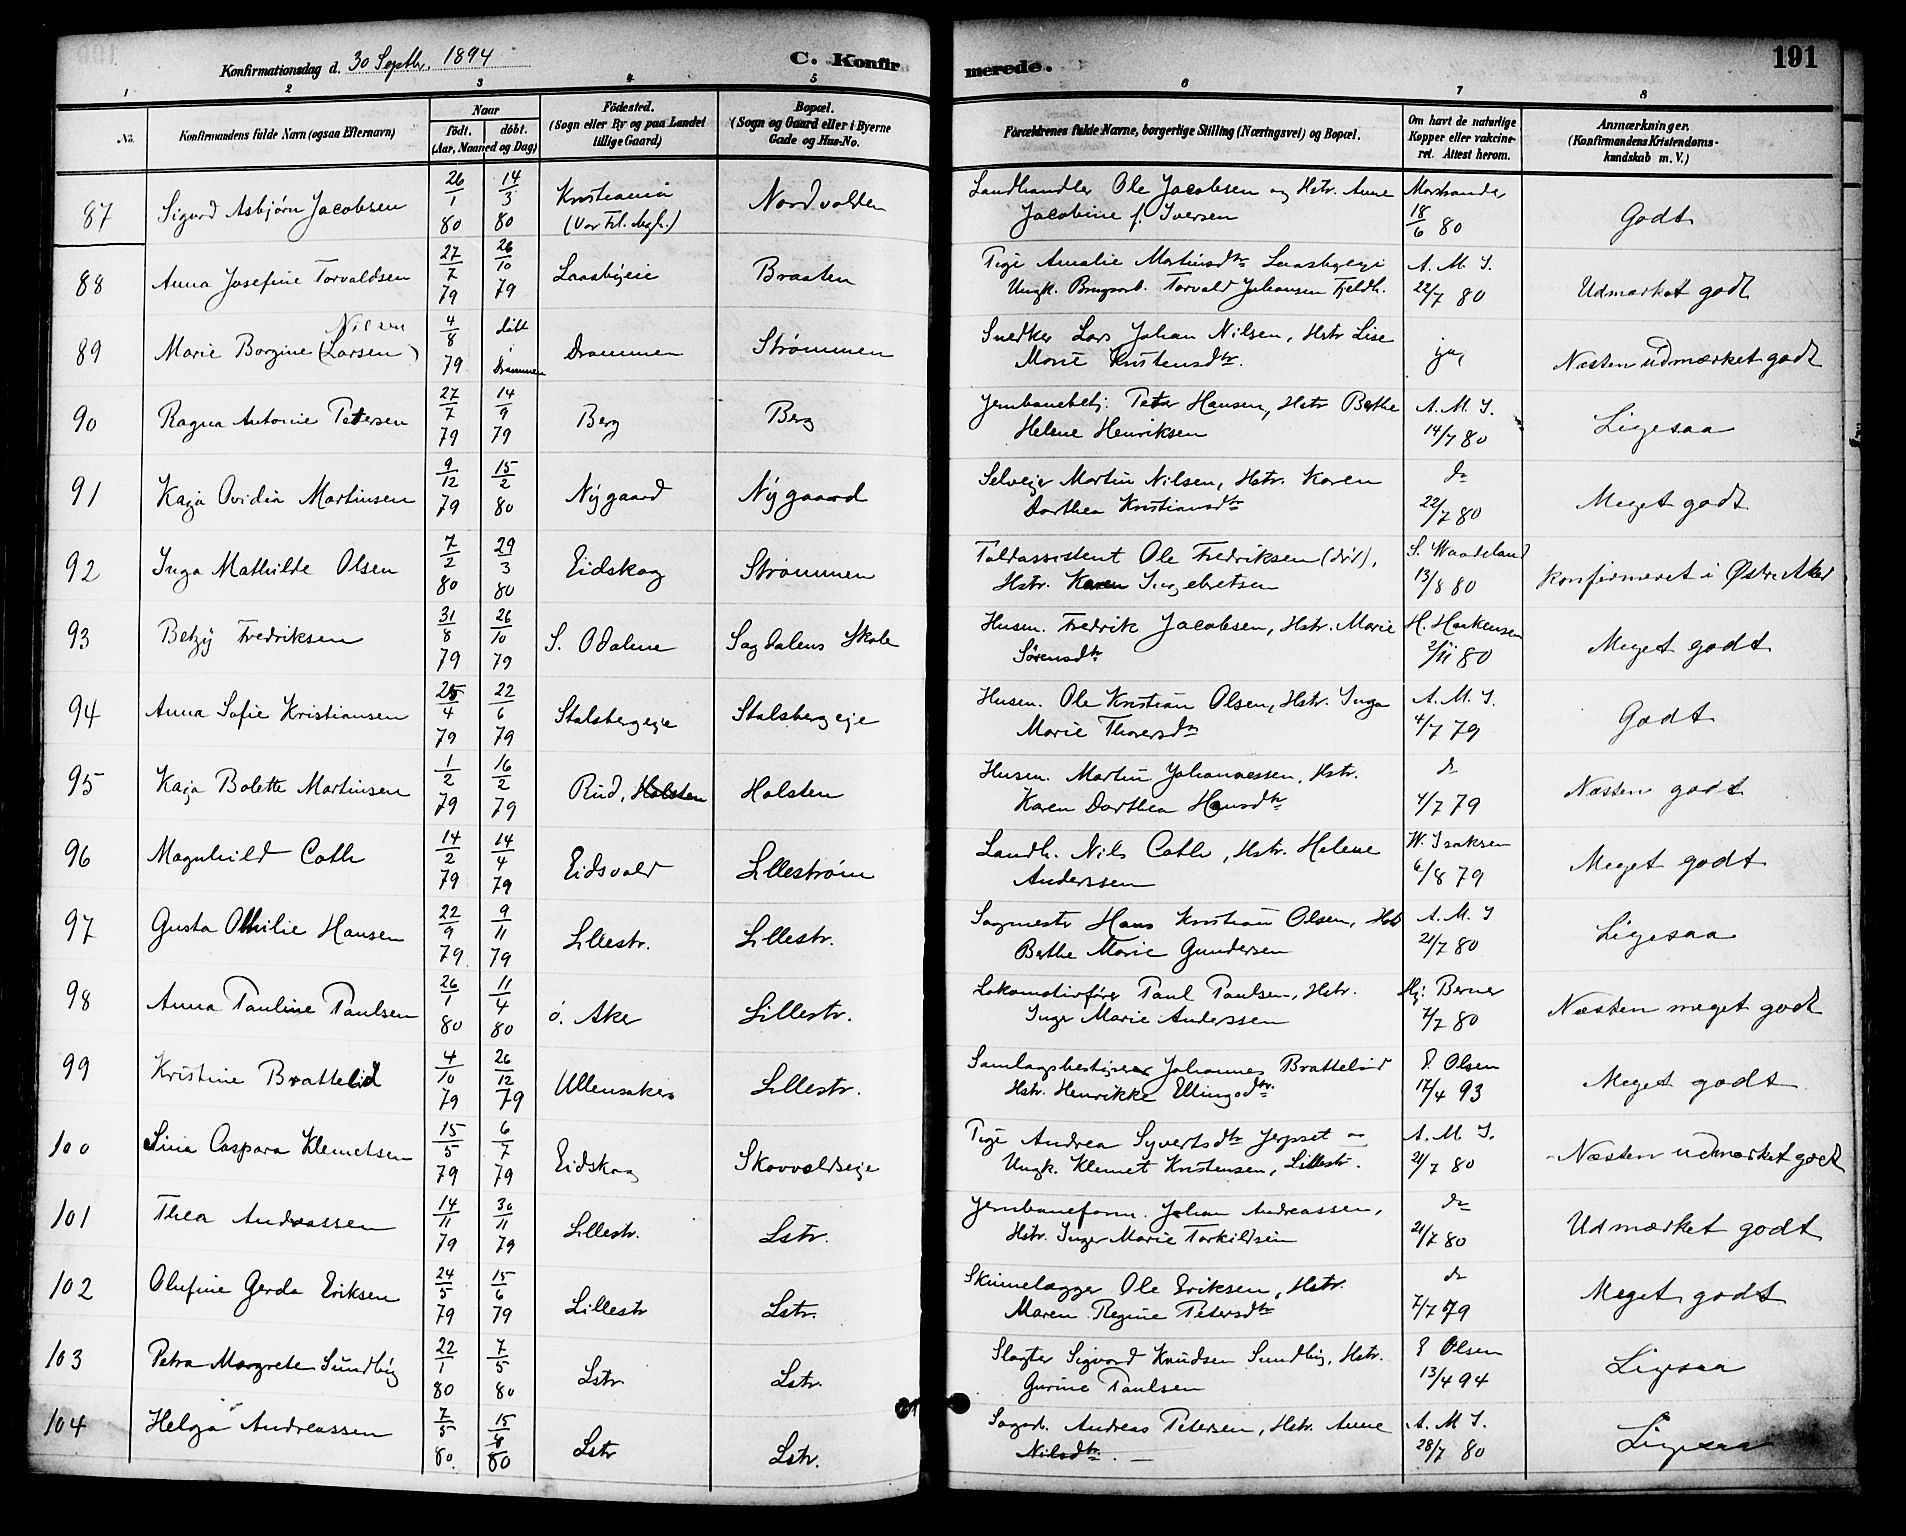 Konfirmationsdag d. 30 Septbr. 1894 C. Konfirmerede. 191
1 2 3 4 5 6 7 8
No. Konfirmandens fulde Navn (ogsaa Efternavn) Naar födt. döbt. (Aar, Maaned og Dag) Födested. (Sogn eller By og paa Landet tillige Gaard) Bopæl. (Sogn og Gaard eller i Byerne Gade og Hus-No. Forældrenes fulde Navne, borgerlige Stilling (Næringsvei) og Bopæl. Om havt de naturlige Kopper eller vakcineret. Attest herom. Anmærkninger. (Konfirmandens Kristendomskundskab m. V.)
87 Sigurd Asbjørn Jacobsen 26/1 80 14/3 80 Kristiania (Vor Frl. Mgh.) Nordvolden Landhandler Ole Jacobsen og Hstr. Anne Jacobine f. Iversen 18/6 80 Godt
88 Anna Josefine Torvaldsen 27/7 79 26/10 79 Laasbyeie Braaten Pige Amalie Martinsdtr Laasbyeje Ungk. Brugsarb. Torvald Johansen Fjeldh. A. M. I. 22/7 80 Udmærket godt
89 Marie Borgine (Larsen) Nilsen 4/8 79 døbt i Drammen Drammen Strømmen Snedker Lars Johan Nilsen, Hstr Lise Marie Kristensdtr. ja, Næsten udmærket godt
90 Ragna Antonie Petersen 27/7 79 14/9 79 Berg Berg Jernbanebetj. Peter Hansen, Hstr Berthe Helene Henriksen A. M. I. 14/7 80 Ligesaa
91 Kaja Ovidia Martinsen 9/12 79 15/2 80 Nygaard Nygaard Selveier Martin Nilsen, Hstr. Karen Dorthea Kristiansdtr do 22/7 80 Meget godt
92 Inga Mathilde Olsen 7/2 80 29/3 80 Eidskog Strømmen Toldassistent Ole Fredriksen (død), Hstr. Karen Ingebretsen S. Waadeland 13/8 80 Konfirmeret i Østre Aker
93 Betzy Fredriksen 31/8 79 26/10 79 S. Odalen Sagdalens Skole Husm. Fredrik Jacobsen, Hstr. Marie Sørensdtr H. Haakensen 2/11 80 Meget godt
94 Anna Sofie Kristiansen 25/4 79 22/6 79 Stalsbergeje Stalsbergeje Husm. Ole Kristian Olsen, Hstr. Inga Marie Thoresdtr A. M. I. 4/7 79 Godt
95 Kaja Bolette Martinsen 1/2 79 16/2 79 Rud, Holsten Holsten Husm. Martin Johannessen, Hstr. Karen Dorthea Hansdtr do 4/7 79 Næsten godt
96 Magnhild Coth 14/2 79 14/4 79 Eidsvold Lillestrøm Landh. Nils Coth, Hstr. Helene Anderssen W. Isaksen 6/8 79 Meget godt
97 Gusta Othilie Hansen 22/9 79 9/11 79 Lillestr. Lillestr. Sagmester Hans Kristian Olsen, Hstr Berthe Marie Gundersen A. M. I 21/7 80 Ligesaa
98 Anna Pauline Paulsen 26/1 80 11/4 80 Ø. Aker Lillestr. Lokomotivfører Paul Paulsen, Hstr. Inger Marie Anderssen Hj. Berner 7/7 80 Næsten meget godt
99 Kristine Brattelid 4/10 79 26/12 79 Ullensaker Lillestr. Samlagsbestyrer Johannes Brattelid Hstr. Henrikke Ellingsdtr. E. Olsen 17/4 93 Meget godt
100 Sina Caspara Klemetsen 15/5 79 6/7 79 Eidskog Skovvoldseje Pige Andrea Syvertsdtr Jerpset – Ungk. Klemet Kristensen, Lillestr. A. M I. 21/7 80 Næsten udmærket godt
101 Thea Andreassen 14/11 79 30/11 79 Lillestr. Lstr. Jernbaneform. Johan Andreassen, Hstr. Inger Marie Torkildsen do 21/7 80 Udmærket godt
102 Olufine Gerda Eriksen 24/5 79 15/6 79 Lillestr Lstr. Skinnelægger Ole Eriksen, Hstr. Maren Regine Petersdtr do 7/7 79 Meget godt
103 Petra Margrete Sundby 22/1 80 7/5 80 Lstr. Lstr. Slagter Sigvard Knudsen Sundby, Hstr. Gurine Paulsen E Olsen 13/4 94 Ligesaa
104 Helga Andreassen 7/5 80 15/8 80 Lstr Lstr. Sagarb. Andreas Petersen, Hstr. Anne Nilsdtr. – A. M I. 28/7 80 Ligesaa